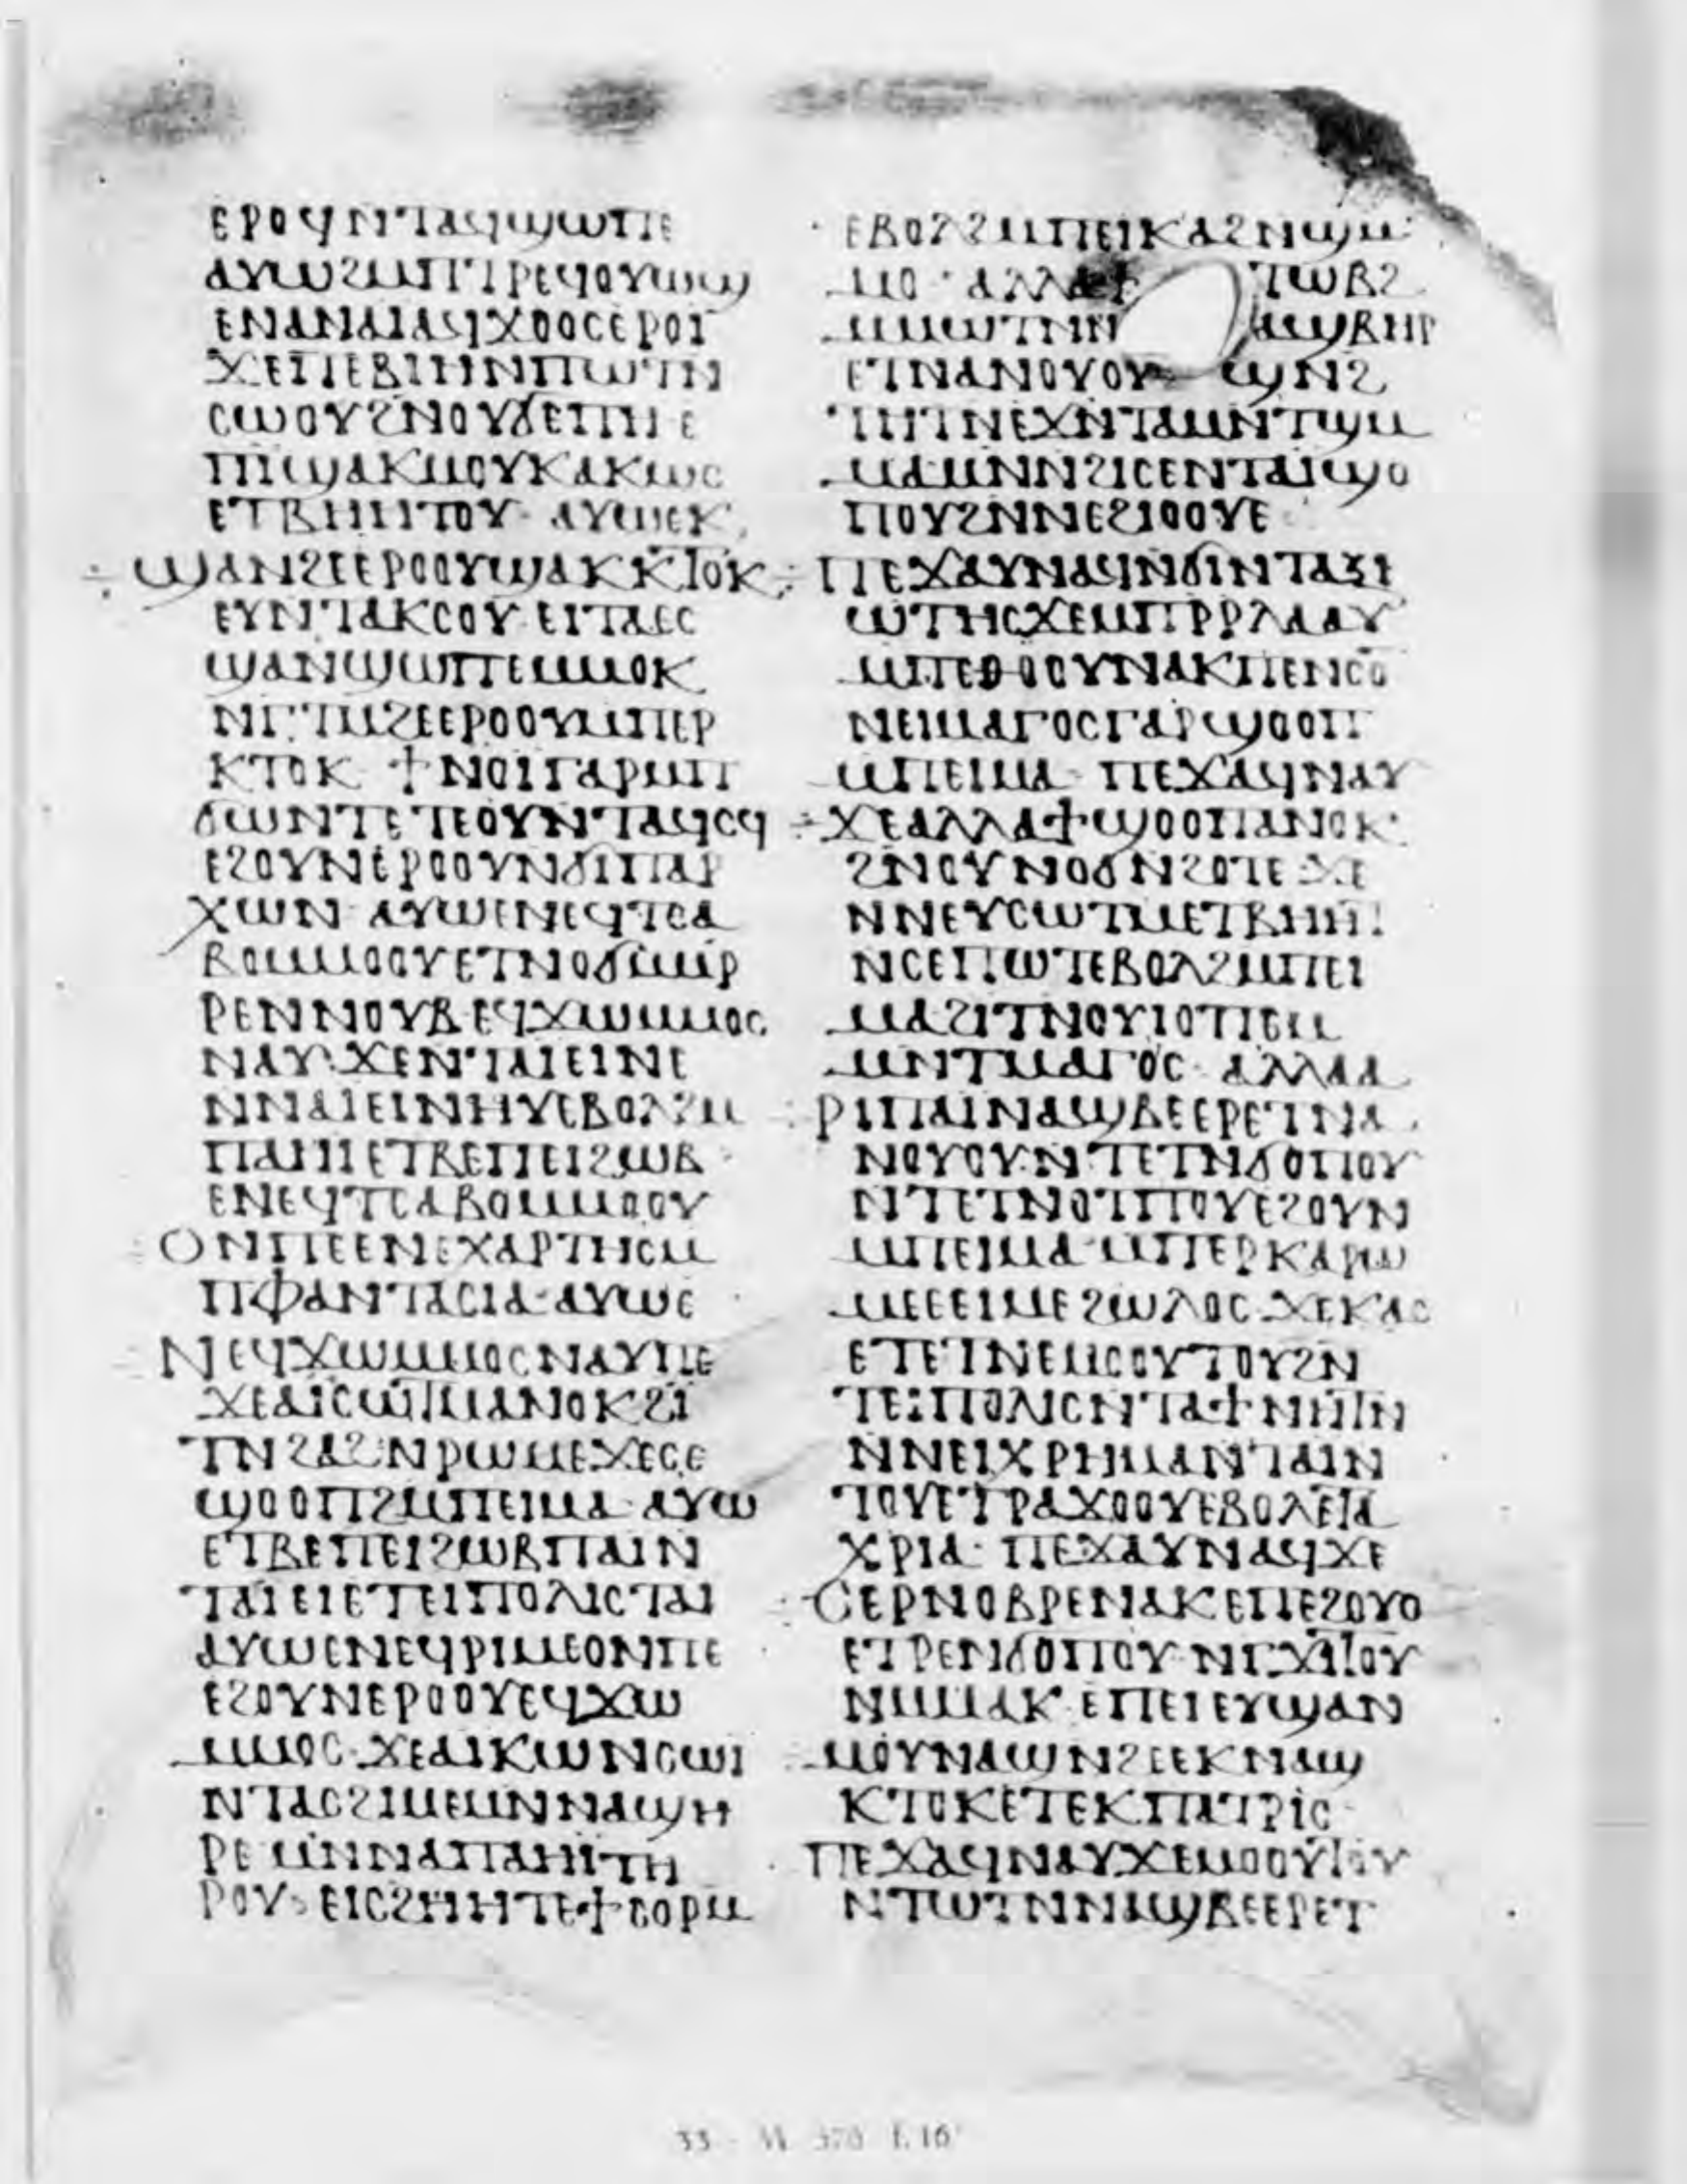 ⲉⲣⲟϥⲛⲧⲁϥϣⲱⲡⲉ
ⲁⲩⲱϩⲙⲡⲧⲣⲉϥⲟⲩⲱϣ
ⲉⲛⲁⲛⲁⲓⲁϥϫⲟⲟⲥⲉⲣⲟⲓ
ϫⲉⲡⲉⲃⲓⲏⲛⲡⲱⲧⲛ
ⲥⲱⲟⲩϩⲛⲟⲩϭⲉⲡⲏ ⲉ
ϣⲁⲕⲙⲟⲩⲕⲁⲕⲱⲥ
ⲉⲧⲃⲏⲏⲧⲟⲩ ⲁⲩⲱⲉⲕ
ϣⲁⲛϩⲉⲉⲣⲟⲟⲩϣⲁⲕⲕⲧⲟⲕ
ⲉⲩⲛⲧⲁⲕⲥⲟⲩ ⲉⲓⲧⲁⲉⲥ
ϣⲁⲛϣⲱⲡⲉⲙⲙⲟⲕ
ⲛⲅⲧⲙϩⲉⲉⲣⲟⲟⲩⲙⲡⲉⲣ
ⲕⲧⲟⲕ ϯⲛⲟⲓⲅⲁⲣⲙⲡ
ϭⲱⲛⲧⲉⲧⲉⲟⲩⲛⲧⲁϥⲥϥ
ⲉϩⲟⲩⲛⲉⲣⲟⲟⲩⲛϭⲓⲡⲁⲣ
ⲭⲱⲛ ⲁⲩⲱⲉⲛⲉϥⲧⲥⲁ
ⲃⲟⲙⲙⲟⲟⲩⲉⲧⲛⲟϭⲙⲙⲣ
ⲣⲉⲛⲛⲟⲩⲃⲉϥϫⲱⲙⲙⲟⲥ
ⲛⲁⲩ ϫⲉⲛⲧⲁⲓⲉⲓⲛⲉ
ⲛⲛⲁⲓⲉⲓⲛⲏⲩⲉⲃⲟⲗϩⲙ
ⲡⲁⲏⲓⲉⲧⲃⲉⲡⲉⲓϩⲱⲃ
ⲉⲛⲉϥⲧⲥⲁⲃⲟⲙⲙⲟⲟⲩ
ⲟⲛⲡⲉⲉⲛⲉⲭⲁⲣⲧⲏⲥⲙ
ⲡⲫⲁⲛⲧⲁⲥⲓⲁ ⲁⲩⲱⲉ
ⲛⲉϥϫⲱⲙⲙⲟⲥⲛⲁⲩⲡⲉ
ϫⲉⲁⲓⲥⲱⲧⲙⲁⲛⲟⲕϩⲓ
ⲧⲛϩⲁϩⲛⲣⲱⲙⲉϫⲉⲥⲉ
ϣⲟⲟⲡϩⲙⲡⲉⲓⲙⲁ ⲁⲩⲱ
ⲉⲧⲃⲉⲡⲉⲓϩⲱⲃⲡⲁⲓⲛ
ⲧⲁⲓⲉⲓⲉⲧⲉⲓⲡⲟⲗⲓⲥⲧⲁⲓ
ⲁⲩⲱⲉⲛⲉϥⲣⲓⲙⲉⲟⲛⲡⲉ
ⲉϩⲟⲩⲛⲉⲣⲟⲟⲩⲉϥϫⲱ
ⲙⲙⲟⲥ ϫⲉⲁⲓⲕⲱⲛⲥⲱⲓ
ⲛⲧⲁⲥϩⲓⲙⲉⲙⲛⲛⲁϣⲏ
ⲣⲉ ⲙⲛⲛⲁⲡⲁⲏⲓⲧⲏ
ⲣⲟⲩ ⲉⲓⲥϩⲏⲏⲧⲉϯⲥⲟⲣⲙ
ⲉⲃⲟⲗϩⲙⲡⲉⲓⲕⲁϩⲛϣⲙ
ⲙⲟ ⲁⲗⲗⲁϯ ⲧⲱⲃϩ
ⲙⲙⲱⲧⲛⲛ ⲁϣⲃⲏⲣ
ⲉⲧⲛⲁⲛⲟⲩⲟⲩ ϣⲛϩ
ⲧⲏⲧⲛⲉϫⲛⲧⲁⲙⲛⲧϣⲙ
ⲙⲁⲙⲛⲛϩⲓⲥⲉⲛⲧⲁⲓϣⲟ
ⲡⲟⲩϩⲛⲛⲉϩⲓⲟⲟⲩⲉ
ⲡⲉϫⲁⲩⲛⲁϥⲛϭⲓⲛⲧⲁⲝⲓ
ⲱⲧⲏⲥϫⲉⲙⲡⲣⲣⲗⲁⲁⲩ
ⲙⲡⲉⲑⲟⲟⲩⲛⲁⲕⲡⲉⲛⲥⲟ
ⲛⲉⲙⲁⲅⲟⲥⲅⲁⲣϣⲟⲟⲡ
ⲙⲡⲉⲓⲙⲁ ⲡⲉϫⲁϥⲛⲁⲩ
ϫⲉⲁⲗⲗⲁϯϣⲟⲟⲡⲁⲛⲟⲕ
ϩⲛⲟⲩⲛⲟϭⲛϩⲟⲧⲉ ϫⲉ
ⲛⲛⲉⲩⲥⲱⲧⲙⲉⲧⲃⲏⲏⲧ
ⲛⲥⲉⲡⲱⲧⲉⲃⲟⲗϩⲙⲡⲉⲓ
ⲙⲁϩⲓⲧⲛⲟⲩⲓⲟⲡⲉⲙ
ⲙⲛⲧⲙⲁⲅⲟⲥ ⲁⲗⲗⲁ
ⲣⲓⲡⲁⲓⲛⲁϣⲃⲉⲉⲣⲉⲧⲛⲁ
ⲛⲟⲩⲟⲩ ⲛⲧⲉⲧⲛϭⲟⲡⲟⲩ
ⲛⲧⲉⲧⲛⲟⲧⲡⲟⲩⲉϩⲟⲩⲛ
ⲙⲡⲉⲓⲙⲁ ⲙⲡⲉⲣⲕⲁⲣⲱ
ⲙⲉⲉⲉⲓⲙⲉϩⲱⲗⲟⲥ ϫⲉⲕⲁⲥ
ⲉⲧⲉⲧⲛⲉⲙⲥⲟⲩⲧⲟⲩϩⲛ
ⲧⲉⲓⲡⲟⲗⲓⲥⲛⲧⲁϯⲛⲏⲧⲛ
ⲛⲛⲉⲓⲭⲣⲏⲙⲁⲛⲧⲁⲓⲛ
ⲧⲟⲩⲉⲧⲣⲁϫⲟⲟⲩⲉⲃⲟⲗⲉⲧⲁ
ⲭⲣⲓⲁ ⲡⲉϫⲁⲩⲛⲁϥϫⲉ
ⲥⲉⲣⲛⲟⲃⲣⲉⲛⲁⲕⲉⲡⲉϩⲟⲩⲟ
ⲉⲧⲣⲉⲛϭⲟⲡⲟⲩ ⲛⲅϫⲓⲧⲟⲩ
ⲛⲙⲙⲁⲕ ⲉⲡⲉⲓⲉⲩϣⲁⲛ
ⲙⲟⲩⲛⲁϣⲛϩⲉⲉⲕⲛⲁϣ
ⲕⲧⲟⲕⲉⲧⲉⲕⲡⲁⲧⲣⲓⲥ
ⲡⲉϫⲁϥⲛⲁⲩϫⲉⲙⲟⲟⲩⲧⲟⲩ
ⲛⲧⲱⲧⲛⲛⲁϣⲃⲉⲉⲣⲉⲧ